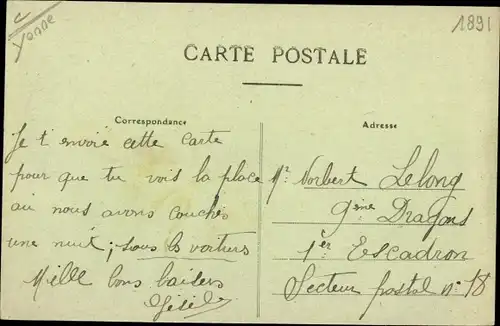 Yonne
1891
CARTE POSTALE
Correspondance
Je t envoie cette carte
pour que tu vois la place
où nous avons couchés
une nuit; sous les voitures
Mille bons baisers
Adresse
Mr. Norbert Lelong
9ème Dragons
1er Escadron
Secteur postal n° 18